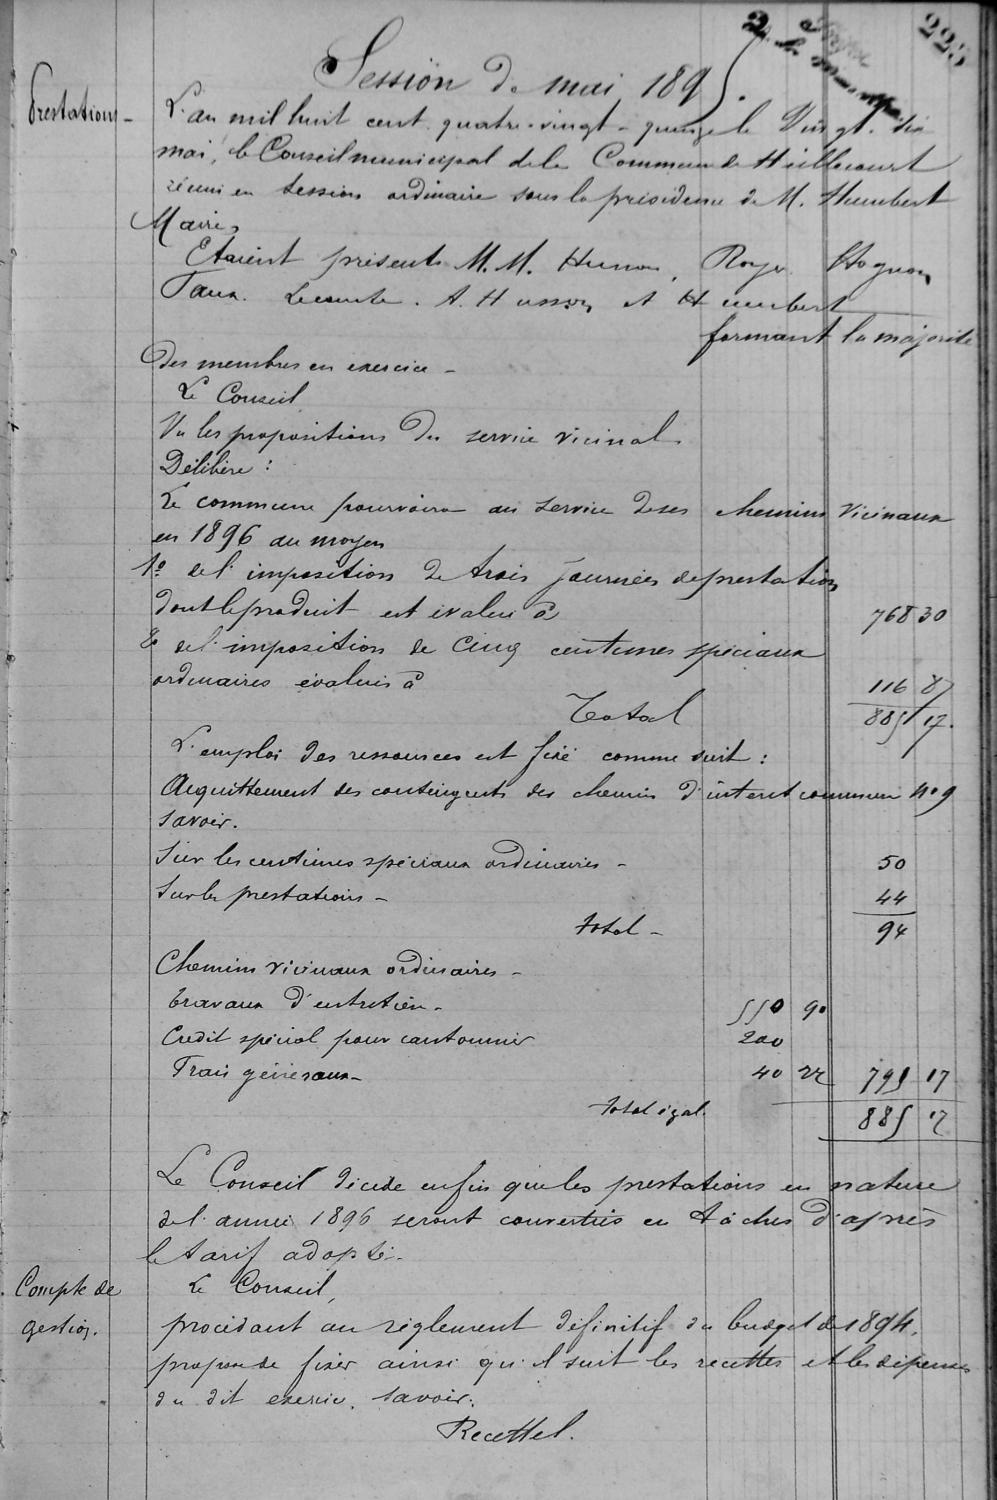 225
Session de mai 1895.
Prestations -
L'an mil huit cent quatre-vingt-quinze le Vingt. six
mai, le Conseil municipal de la Commune de Heillecourt
réuni en session ordinaire sous la présidence de M. Humbert
Maire,
Etaient présents M.M. Husson, Roye Hognon
Taux. Lecomte. A. Husson et Humbert
formant la majorité
des membres en exercice -
Le Conseil
Vu les propositions du service vicinal
Délibère :
La commune pourvoira au service de ses chemins vicinaux
en 1896 au moyen
1º de l'imposition de trois journées de prestation
dont le produit est évalué à 768 30
2º de l'imposition de cinq centimes spéciaux
ordinaires évalués à 116 87
Total 885 17.
L'emploi des ressources est fixé comme suit :
Acquittement des contingents des chemins d'intérêt commun Nº 9
savoir.
Sur les centimes spéciaux ordinaires - 50
Sur les prestations - 44
total - 94
Chemins vicinaux ordinaires -
travaux d'entretien - 550 90
Crédit spécial pour cantonnier 200
Frais généraux - 40 27 791 17
total égal. 885 17
Le Conseil décide enfin que les prestations en nature
de l'année 1896 seront converties en tâches d'après
le tarif adopté -
Compte de
gestion.
Le Conseil,
procédant au règlement définitif du budget de 1894,
propose de fixer ainsi qu'il suit les recettes et les dépenses
du dit exercice. savoir.
Recettes.